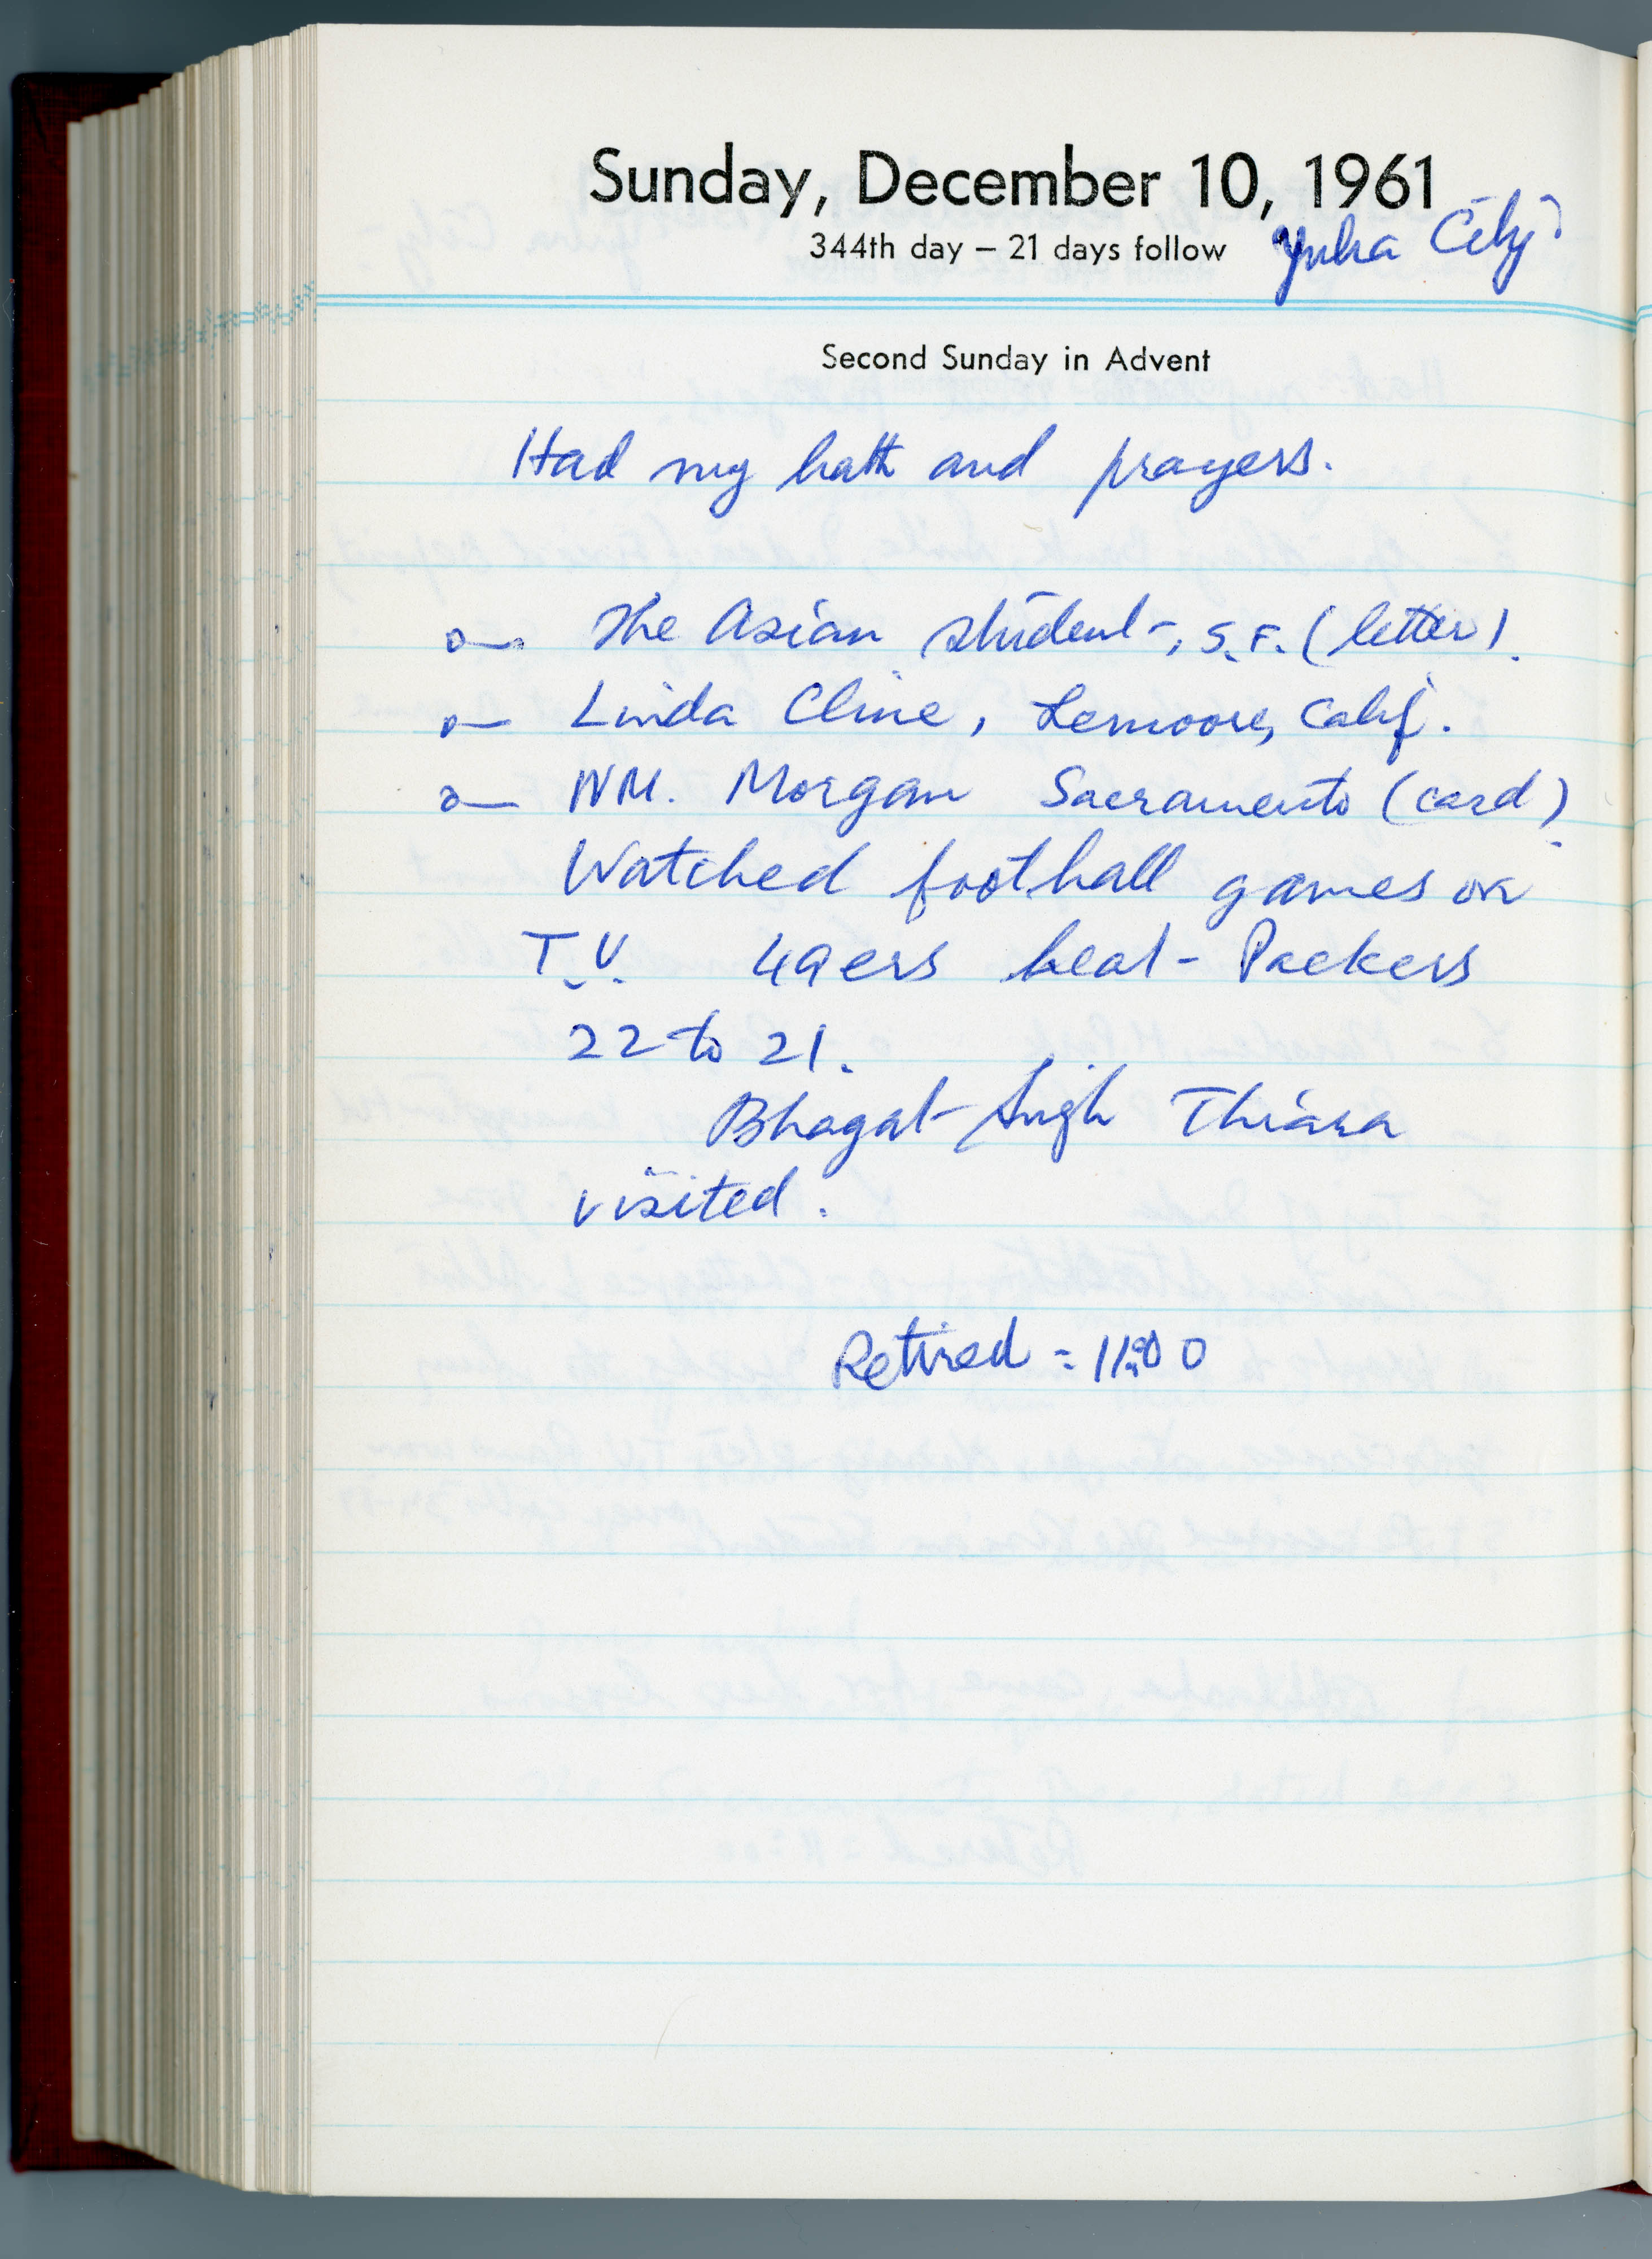 Sunday, December 10, 1961
344th day – 21 days follow Yuba City
Second Sunday in Advent
Had my bath and prayers.
o— The Asian Student, S.F. (letter).
o— Linda Cline, Lemoore, Calif.
o— WM. Morgan Sacramento (card).
Watched football games on
T.V. 49ers beat Packers
22 to 21.
Bhagat Singh Thiara
visited.
Retired = 11:00